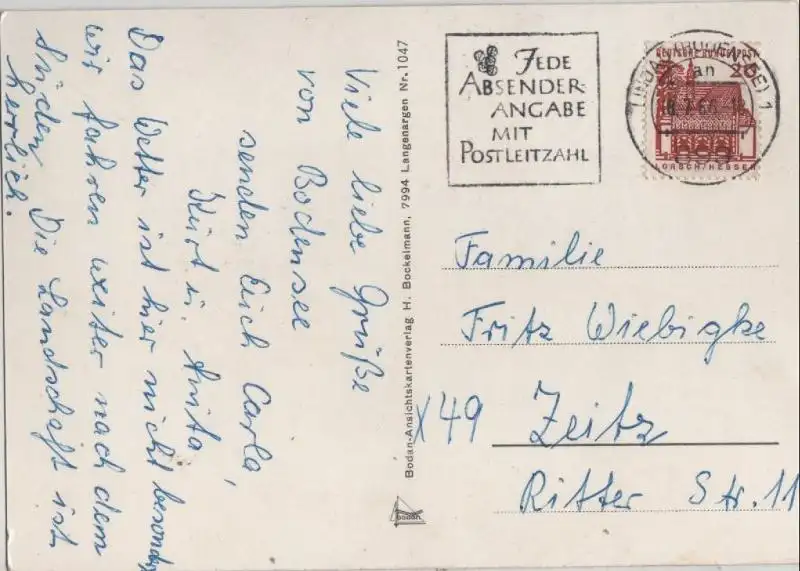 Viele liebe Grüße
von Bodensee
senden Euch Carla,
Kurt u. Anita
Das Wetter ist hier nicht besonders
wir fahren weiter nach dem
Süden. Die Landschaft ist
herrlich.
Bodan-Ansichtskartenverlag H. Bockelmann, 7994 Langenargen Nr. 1047
bodan
JEDE
ABSENDER-
ANGABE
MIT
POSTLEITZAHL
DEUTSCHE BUNDESPOST
20
LORSCH/HESSEN
LINDAU (BODENSEE) 1
an
Familie
Fritz Wiebigke
X49 Zeitz
Ritter Str. 11